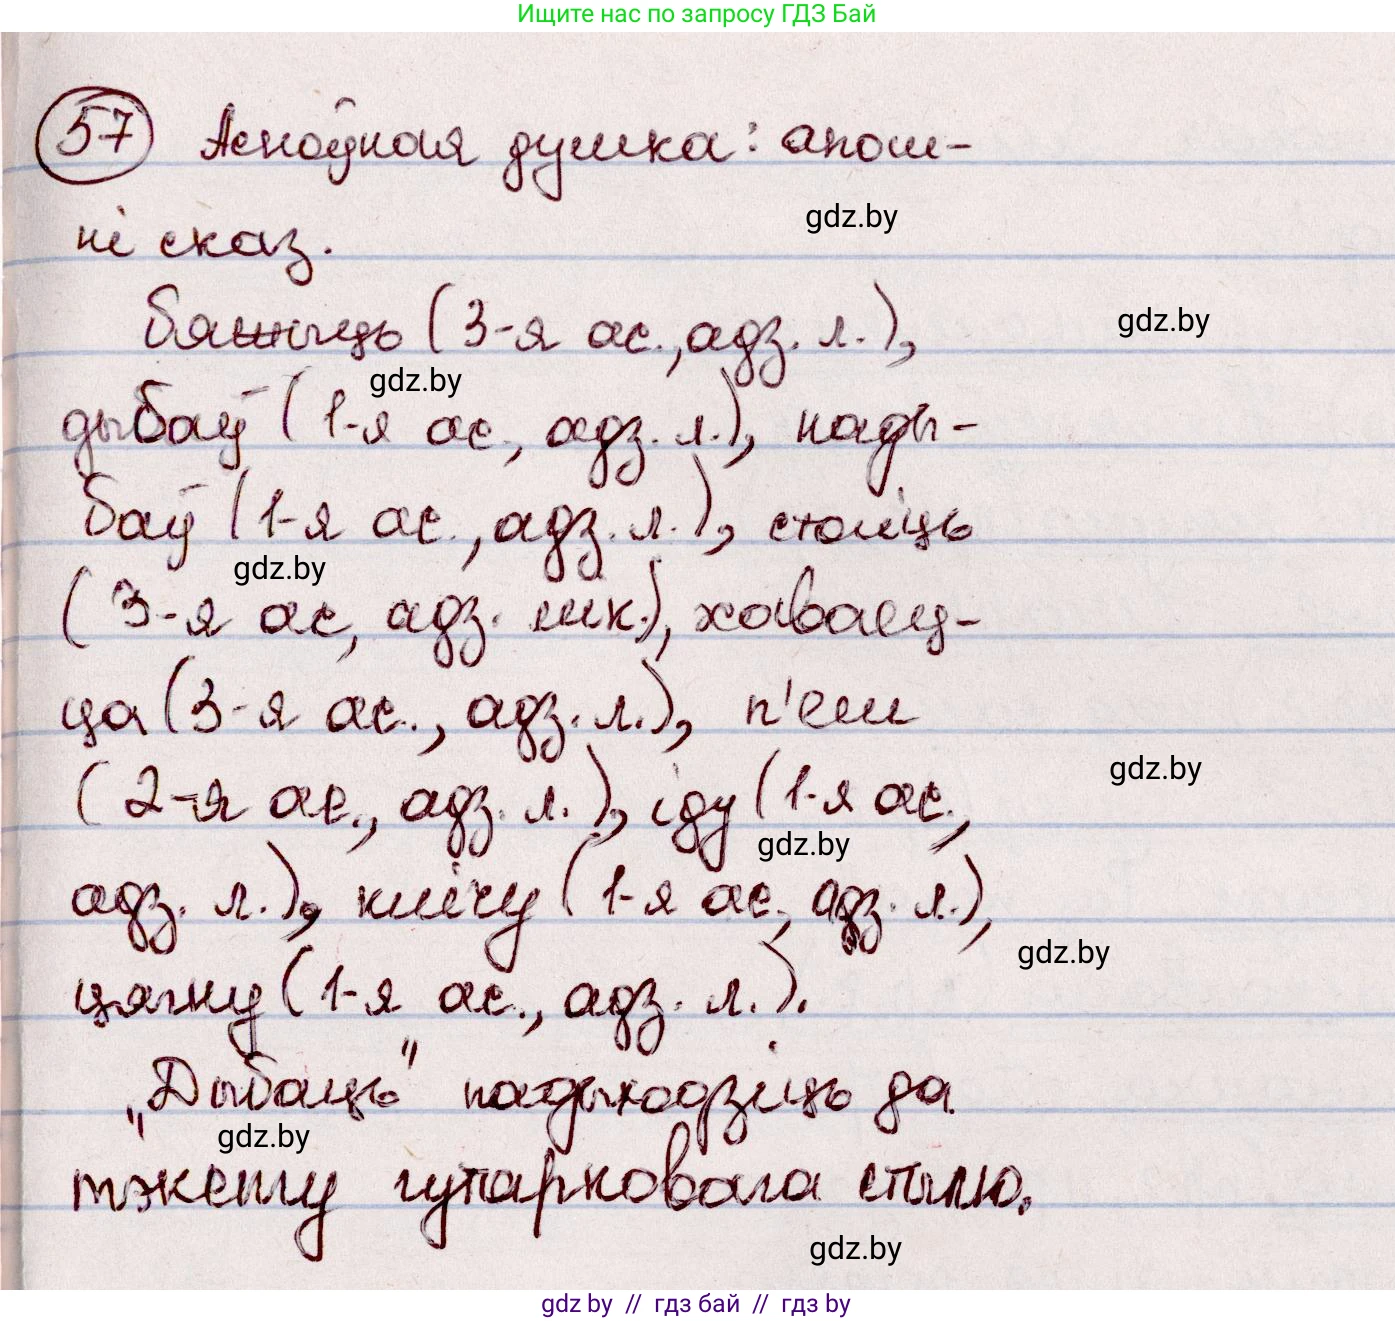 Ищите нас по запросу ГДЗ Бай
57 Асноўная думка: апош-
gdz.by
ні сказ.
бяжыць (3-я ас., адз. л.),
gdz.by
gdz.by
дыбаў (1-я ас., адз. л.), нады-
баў (1-я ас., адз. л.), стаіць
gdz.by
(3-я ас, адз. лік.), хаваец-
ца (3-я ас., адз. л.), п'еш
gdz.by
(2-я ас., адз. л.), іду (1-я ас.,
gdz.by
адз. л.), клічу (1-я ас., адз. л.),
gdz.by
цягну (1-я ас., адз. л.).
„Дыбаць" падыходзіць да
gdz.by
тэксту гутарковага стылю.
gdz.by
gdz by // гдз бай // гдз by